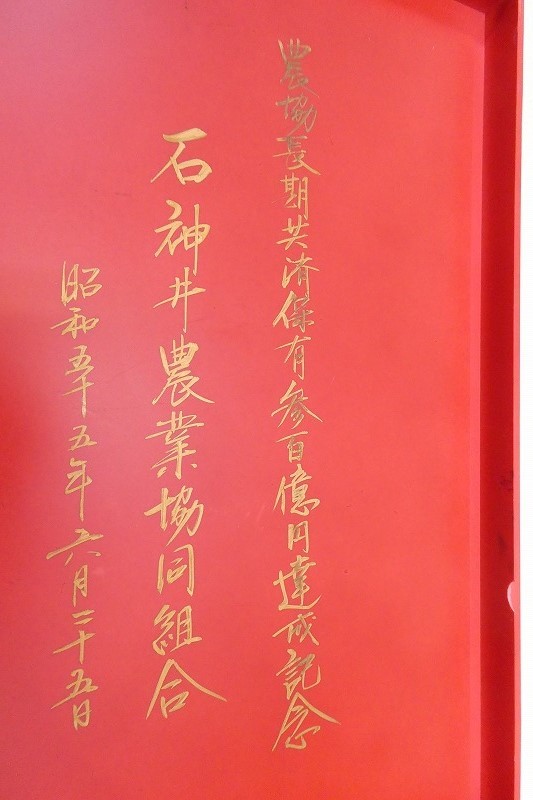 農協長期共済保有参百億円達成記念
石神井農業協同組合
昭和五十五年六月二十五日